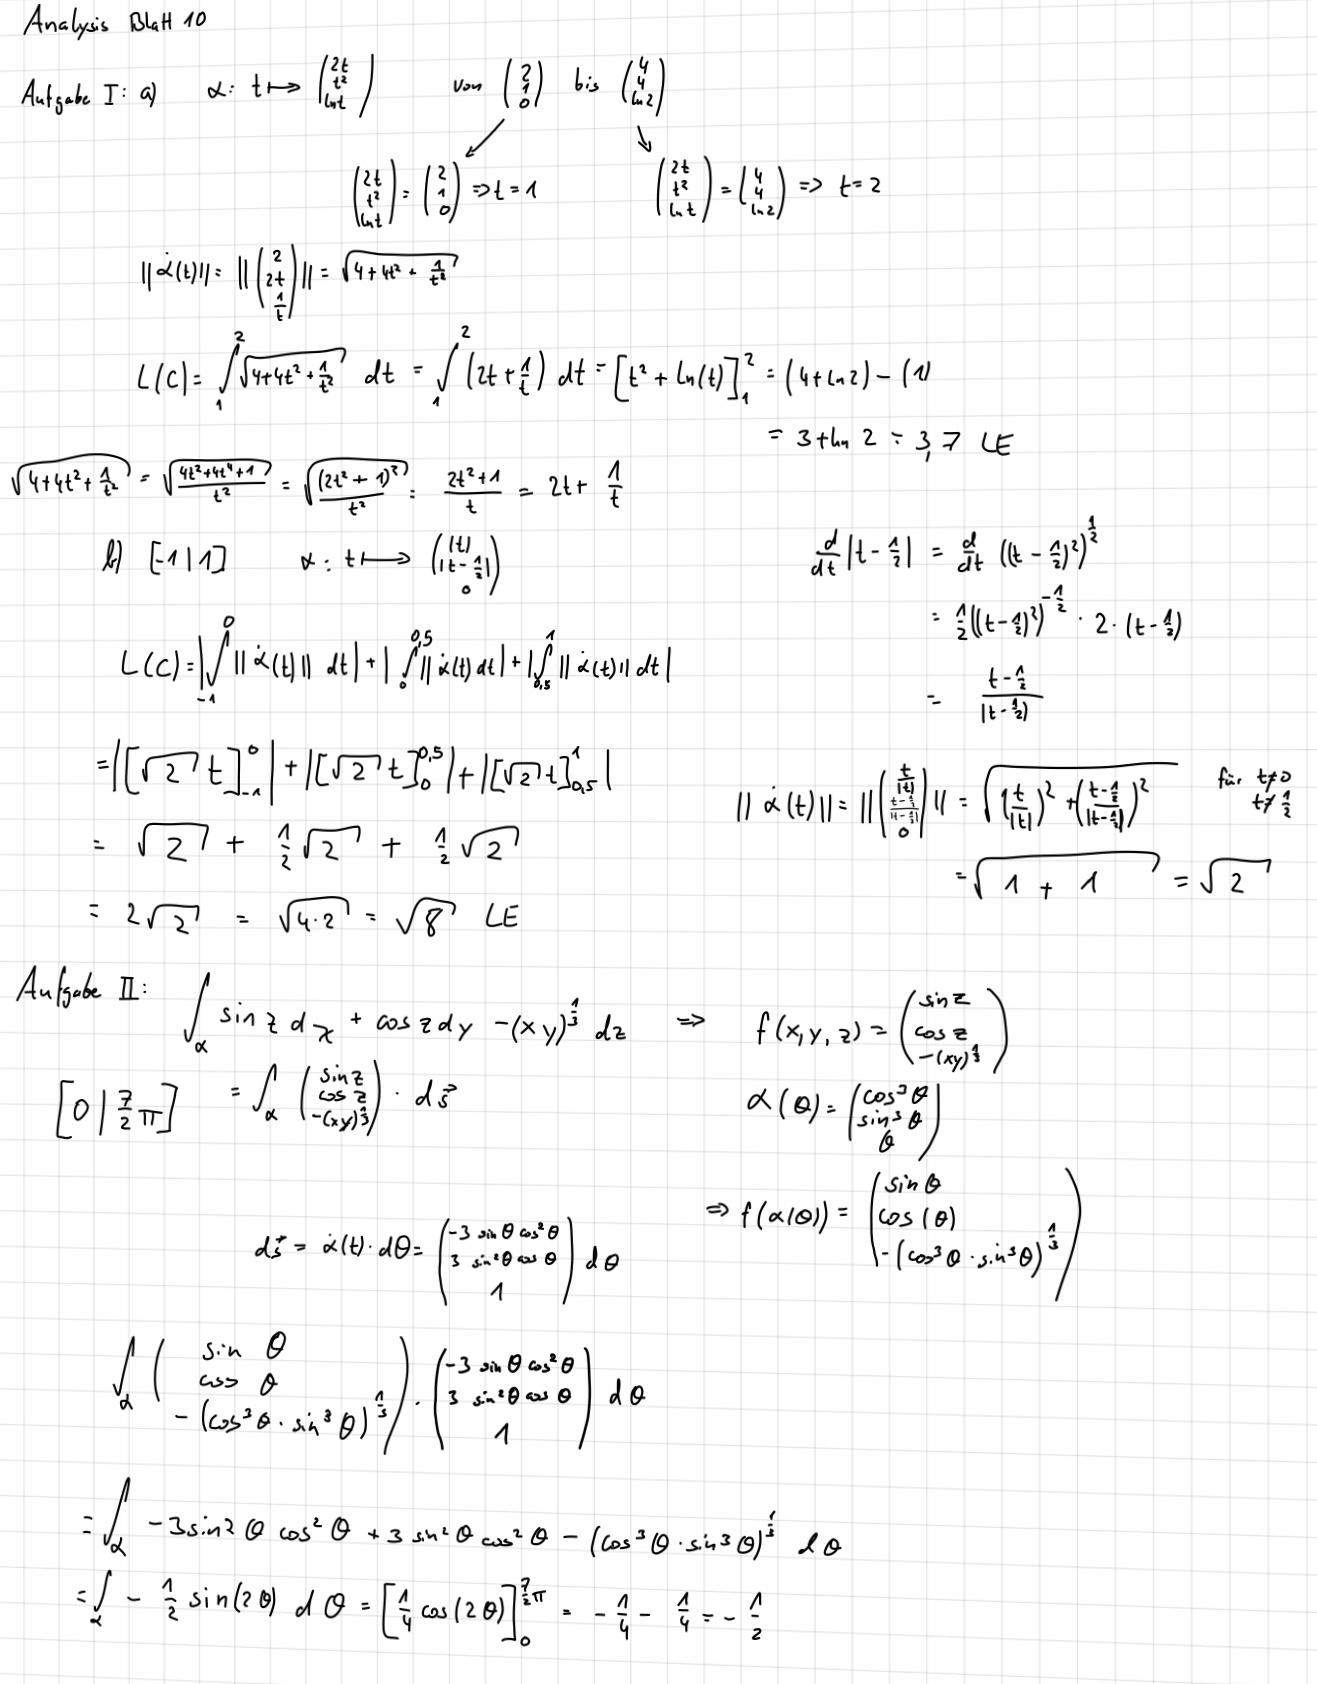 Analysis Blatt 10
Aufgabe I: a) α: t ↦ (2t, t², ln t) von (2, 1, 0) bis (4, 4, ln 2)
(2t, t², ln t) = (2, 1, 0) ⇒ t = 1 (2t, t², ln t) = (4, 4, ln 2) ⇒ t = 2
||α̇(t)|| = ||(2, 2t, 1/t)|| = √(4 + 4t² + 1/t²)
L(C) = ∫₁² √(4+4t²+1/t²) dt = ∫₁² (2t + 1/t) dt = [t² + ln(t)]₁² = (4 + ln 2) − (1)
= 3 + ln 2 = 3,7 LE
√(4+4t²+1/t²) = √((4t²+4t⁴+1)/t²) = √((2t²+1)²/t²) = (2t²+1)/t = 2t + 1/t
b) [-1|1] α: t ↦ (|t|, |t − 1/2|, 0)
d/dt |t − 1/2| = d/dt ((t − 1/2)²)^(1/2)
= 1/2 ((t − 1/2)²)^(−1/2) · 2 · (t − 1/2)
= (t − 1/2)/|t − 1/2)
L(C) = |∫₋₁⁰ ||α̇(t)|| dt| + |∫₀^0,5 ||α̇(t) dt| + |∫_0,5^1 ||α̇(t)|| dt|
= |[√2 t]₋₁⁰| + |[√2 t]₀^0,5| + |[√2 t]_0,5^1|
= √2 + 1/2 √2 + 1/2 √2
= 2√2 = √(4·2) = √8 LE
||α̇(t)|| = ||(t/|t|, (t − 1/2)/|t − 1/2|, 0)|| = √((t/|t|)² + ((t − 1/2)/|t − 1/2|)²) für t≠0
t≠1/2
= √(1 + 1) = √2
Aufgabe II: ∫_α sin z dx + cos z dy − (xy)^(1/3) dz ⇒ f(x, y, z) = (sin z, cos z, −(xy)^(1/3))
[0 | 7/2 π] = ∫_α (sin z, cos z, −(xy)^(1/3)) · ds⃗
α(θ) = (cos³θ, sin³θ, θ)
⇒ f(α(θ)) = (sin θ, cos(θ), −(cos³θ · sin³θ)^(1/3))
ds⃗ = α̇(t) · dθ = (−3 sin θ cos²θ, 3 sin²θ cos θ, 1) dθ
∫_α (sin θ, cos θ, −(cos³θ · sin³θ)^(1/3)) · (−3 sin θ cos²θ, 3 sin²θ cos θ, 1) dθ
= ∫_α −3 sin2 θ cos²θ + 3 sin²θ cos²θ − (cos³θ · sin³θ)^(1/3) dθ
= ∫_α − 1/2 sin(2θ) dθ = [1/4 cos(2θ)]₀^(7/2 π) = − 1/4 − 1/4 = − 1/2